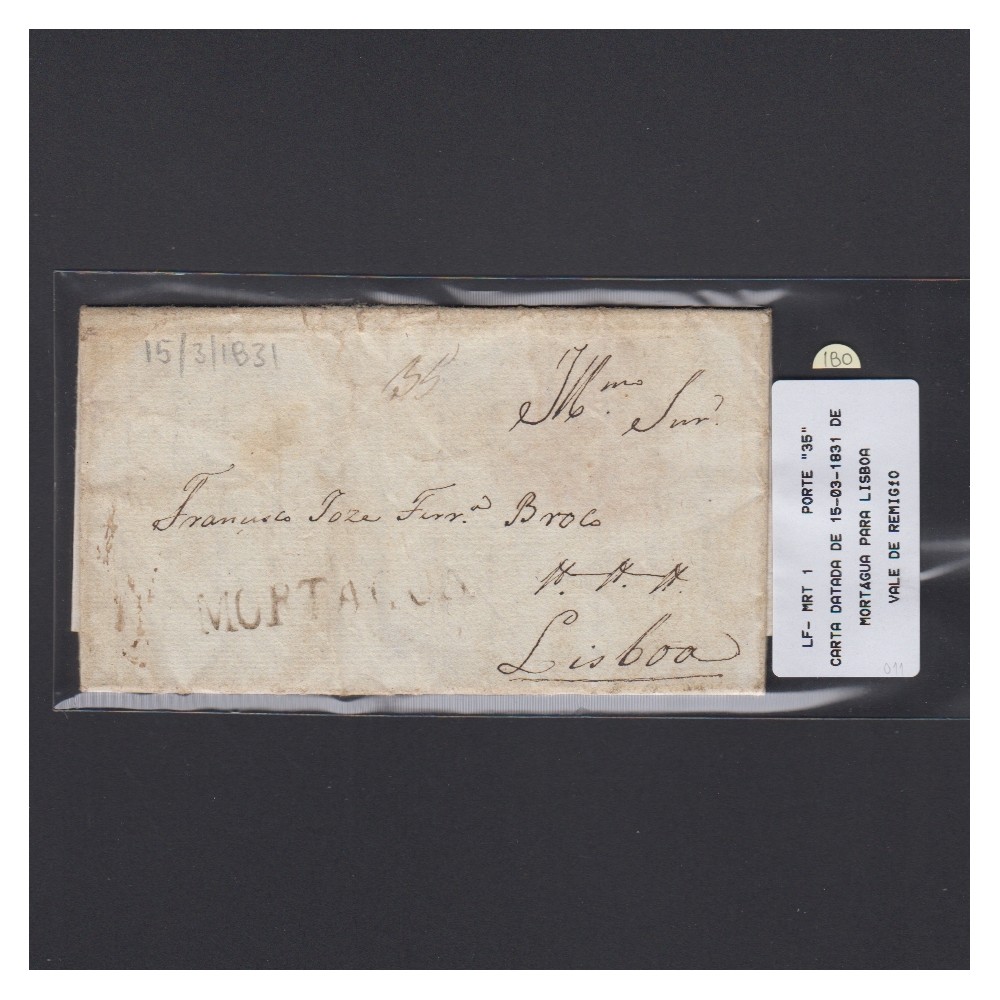 15/3/1831
35
Ill.mo Snr.
Francisco Joze Ferr.a Broco
H. H. H.
MORTAGUA
Lisboa
180
LF- MRT 1 PORTE "35"
CARTA DATADA DE 15-03-1831 DE
MORTÁGUA PARA LISBOA
VALE DE REMIGIO
011